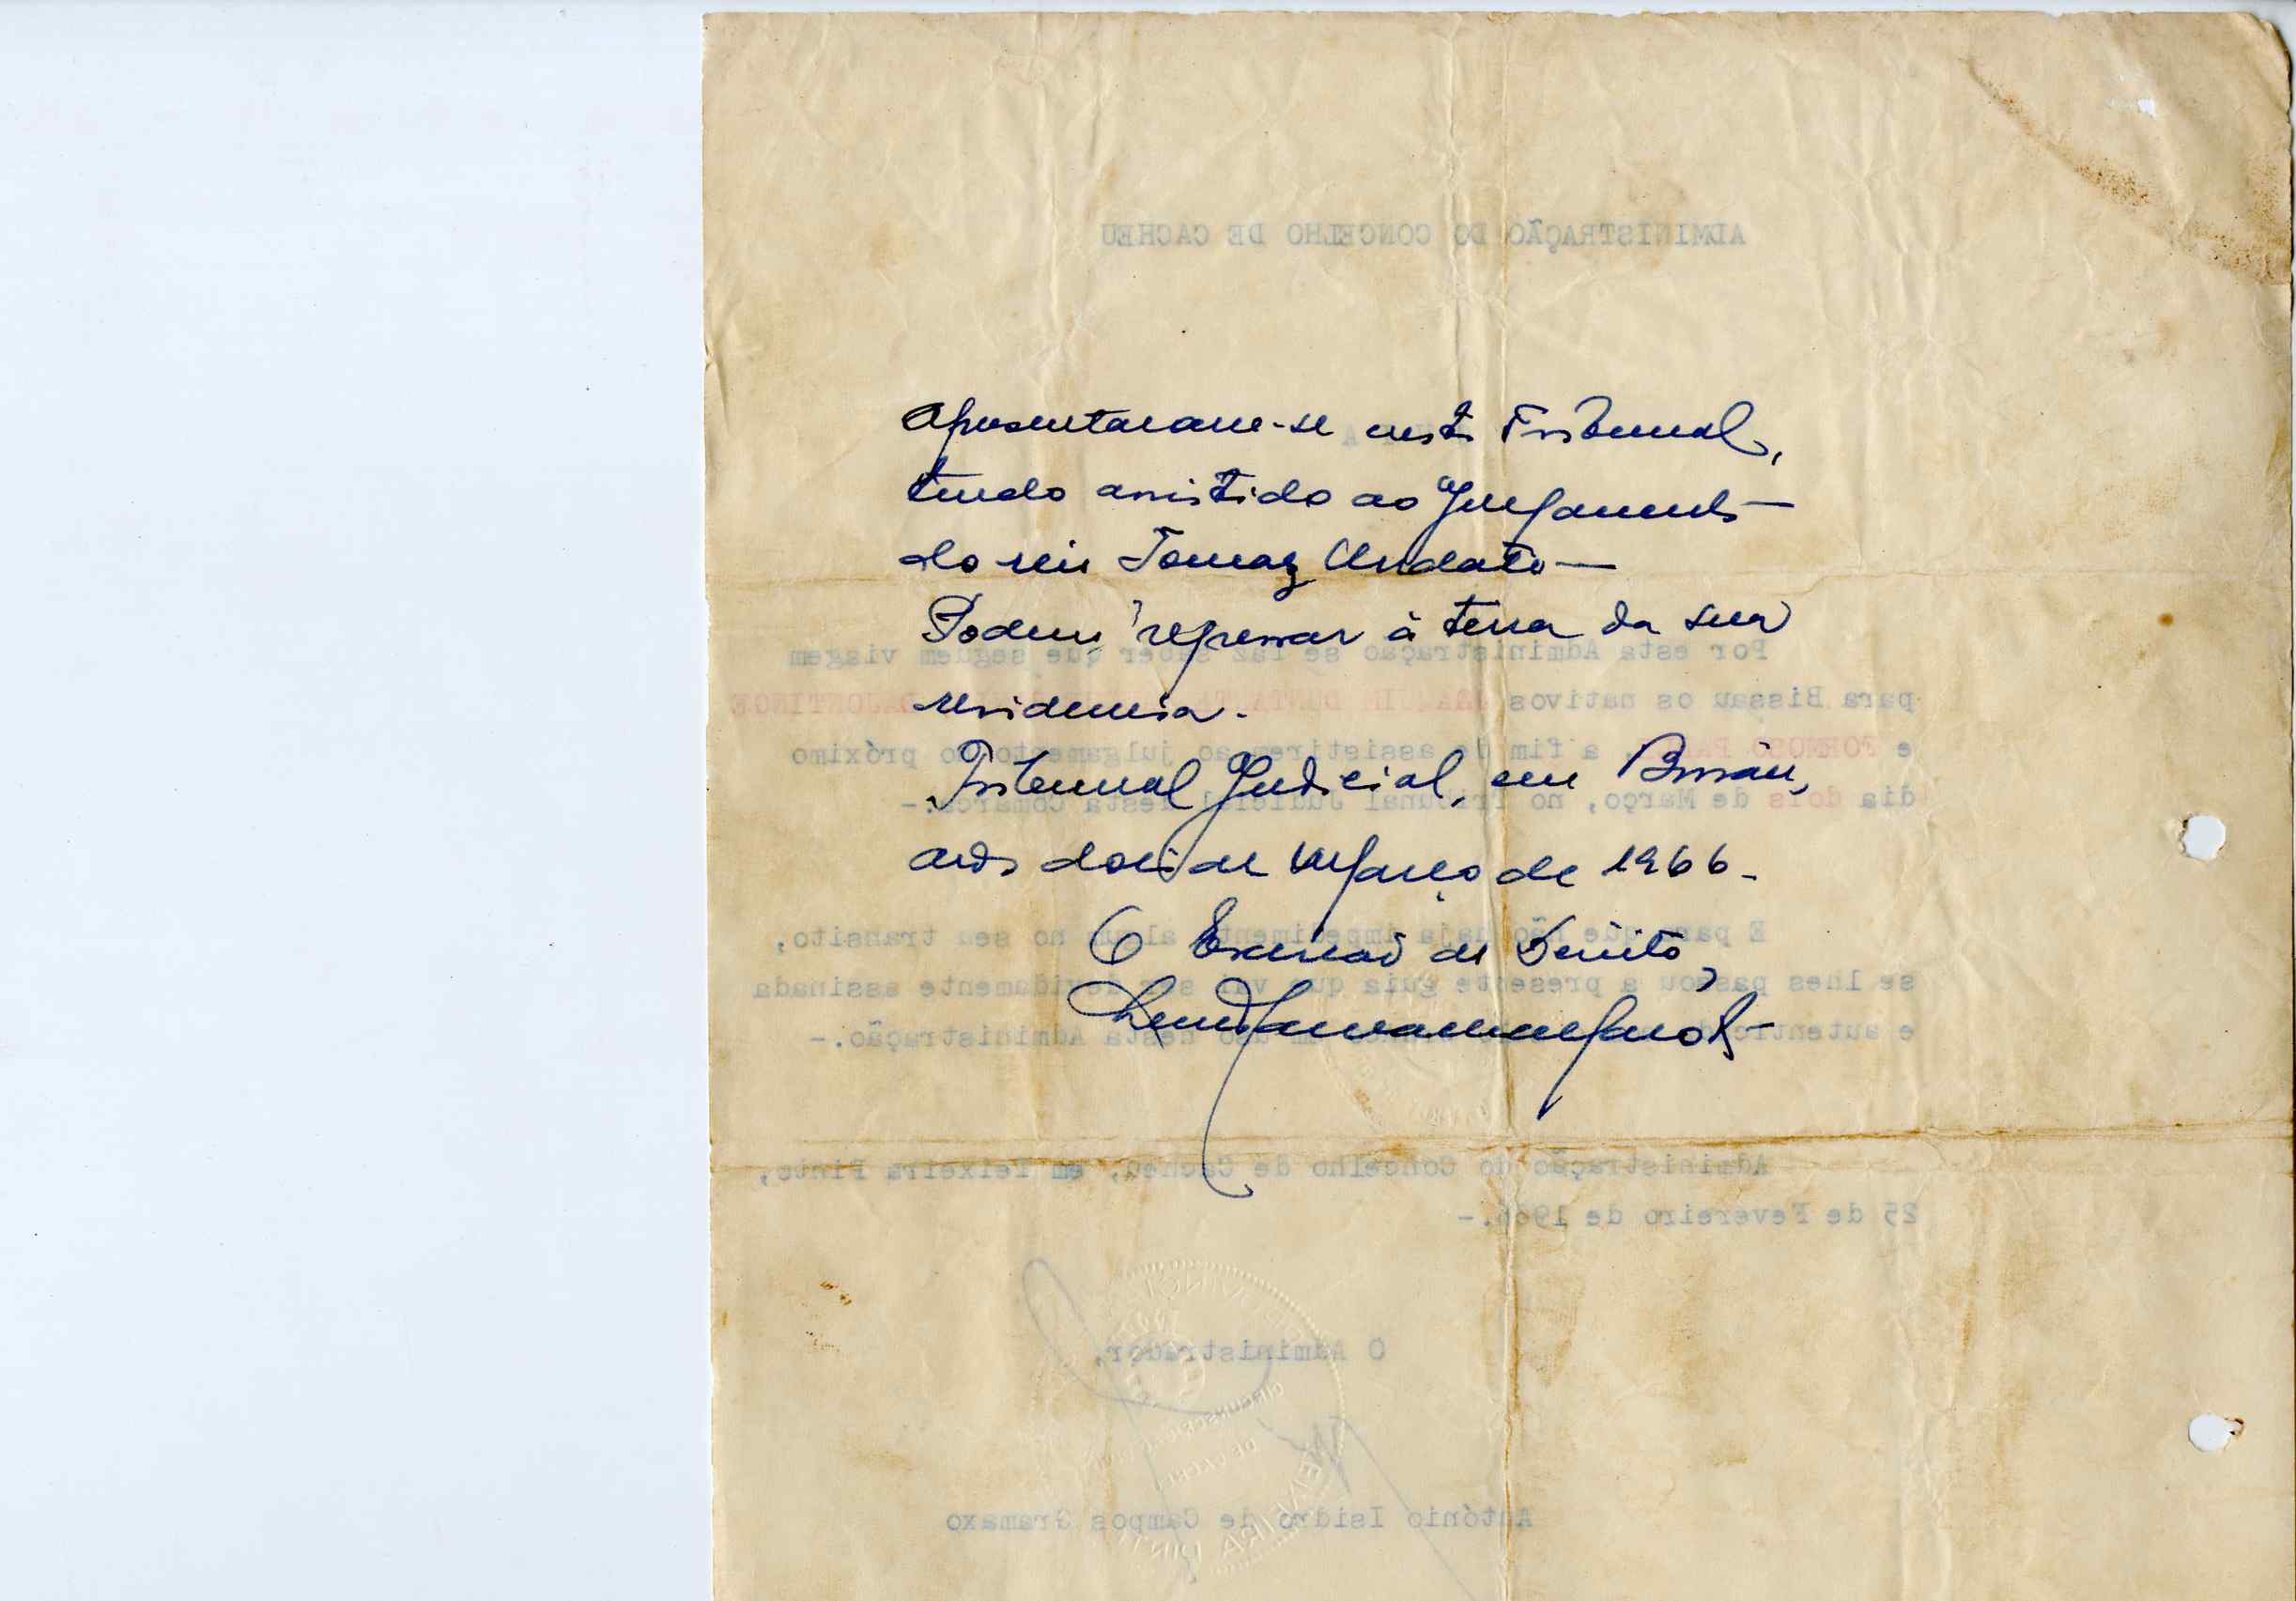 ADMINISTRAÇÃO DO CONCELHO DE CACHEU
Apresentaram-se neste Tribunal,
tendo assistido ao Julgamento
do réu Tomaz
Podem regressar à terra da sua
residencia.
Tribunal Judicial, em Bissau,
aos dois de Março de 1966.
O Escrivão de Direito,
Por esta Administração se faz saber que seguem viagem
para Bissau os nativos
e FORMOSO a fim de assistirem ao julgamento no próximo
dia dois de Março, no Tribunal Judicial desta Comarca.-
E para que não haja impedimento algum no seu transito,
se lhes passou a presente guia que vai ser devidamente assinada
e autenticada em uso nesta Administração.-
Administração do Concelho de Cacheu, em Teixeira Pinto,
25 de Fevereiro de 1966.-
O Administrador,
António Isidro de Campos Gramaxo